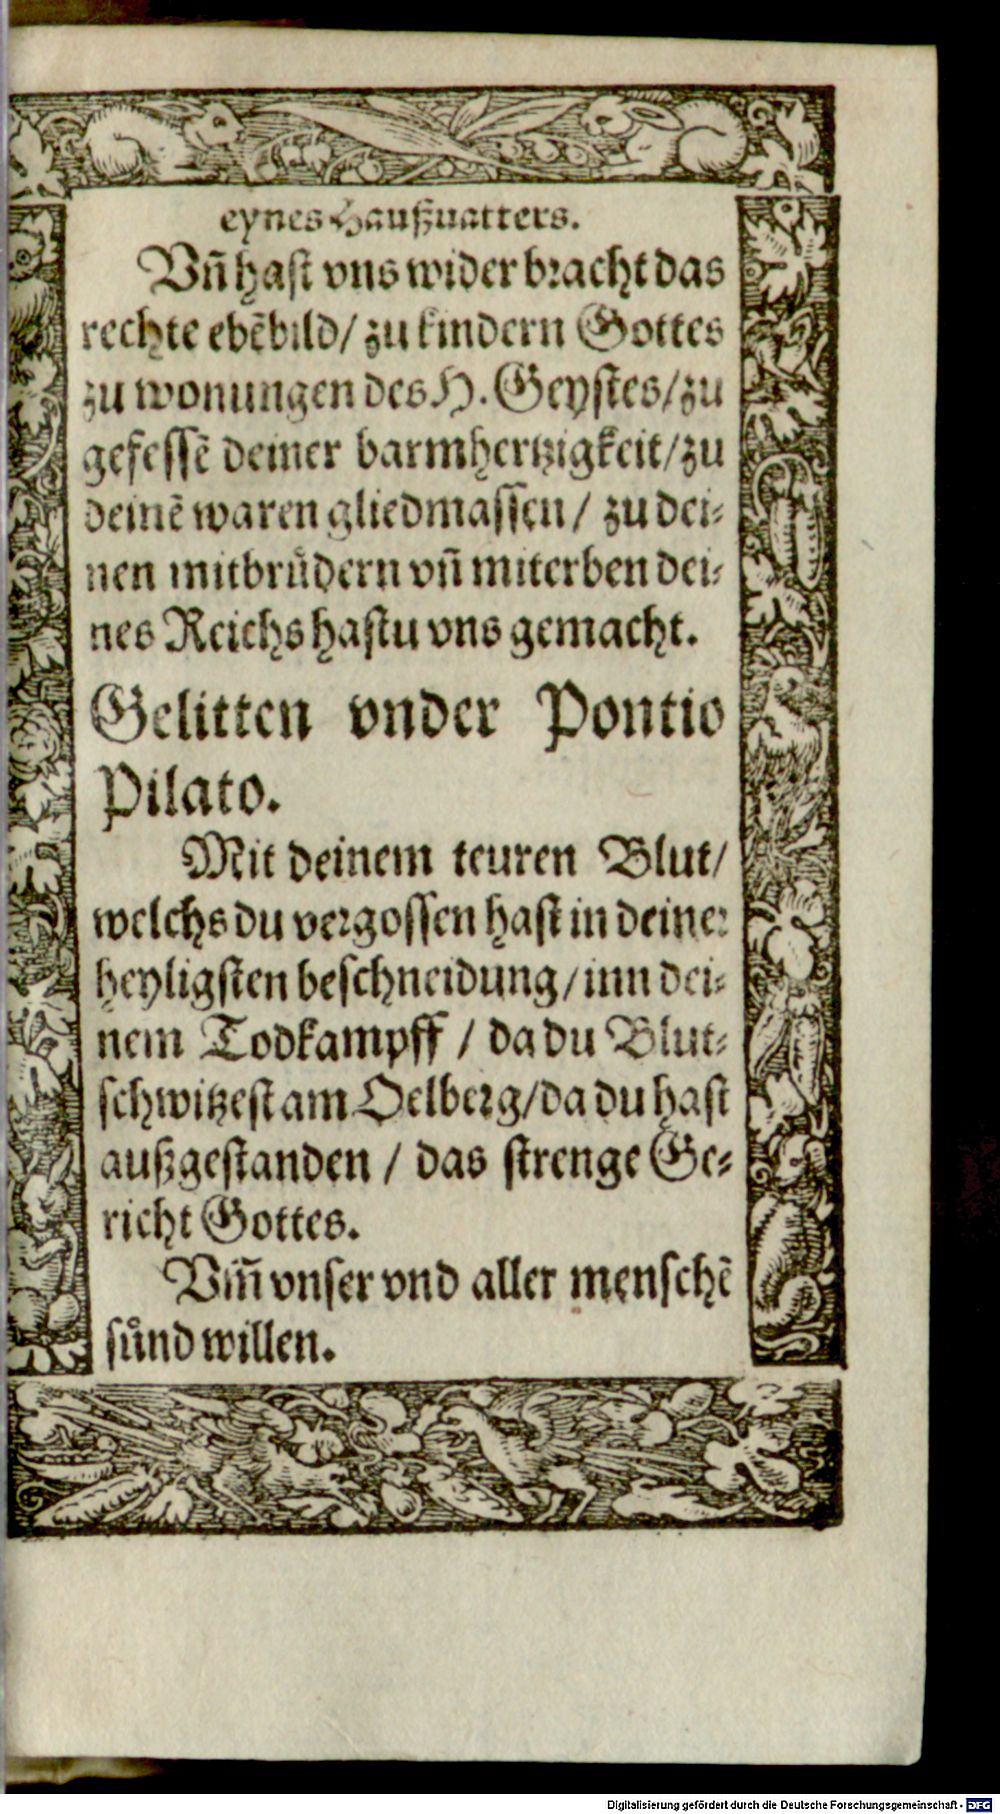 eynes Haußuatters.
Vñ hast vns wider bracht das
rechte ebẽbild/ zu kindern Gottes
zu wonungen des H. Geystes/ zu
gefessẽ deiner barmhertzigkeit/ zu
deinẽ waren gliedmassen/ zu dei-
nen mitbruͤdern vñ miterben dei-
nes Reichs hastu vns gemacht.
Gelitten vnder Pontio
Pilato.
Mit deinem teuren Blut/
welchs du vergossen hast in deiner
heyligsten beschneidung/ inn dei-
nem Todkampff / da du Blut-
schwitzest am Oelberg/ da du hast
außgestanden / das strenge Ge-
richt Gottes.
Vm̃ vnser vnd aller menschẽ
suͤnd willen.
Digitalisierung gefördert durch die Deutsche Forschungsgemeinschaft - DFG